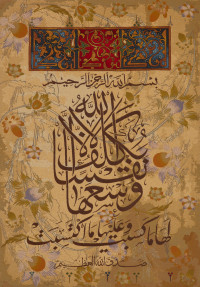 بسم الله الرحمن الرحيم
لا يكلف الله نفسا إلا وسعها
لها ما كسبت وعليها ما اكتسبت
صدق الله العظيم